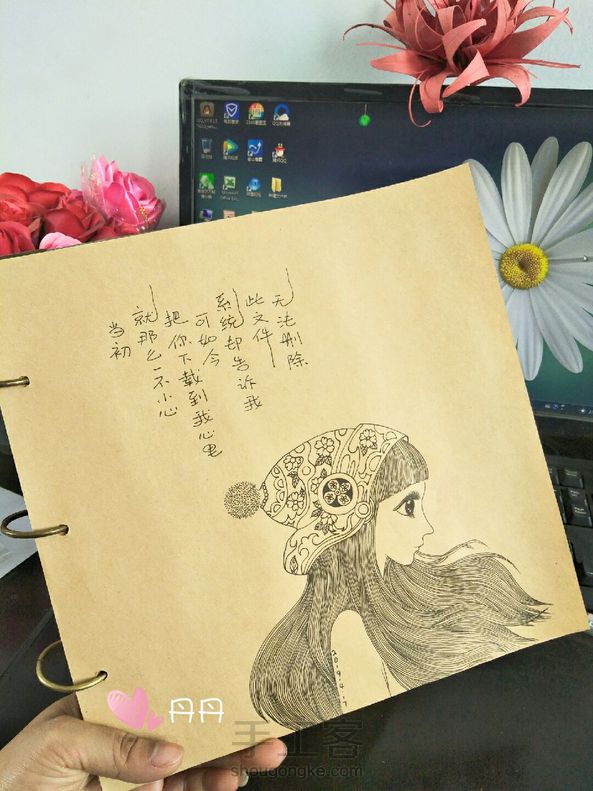 当初
就那么一不小心
把你下载到我心里
可如今
系统却告诉我
此文件
无法删除
丹丹
手工客
shougongke.com